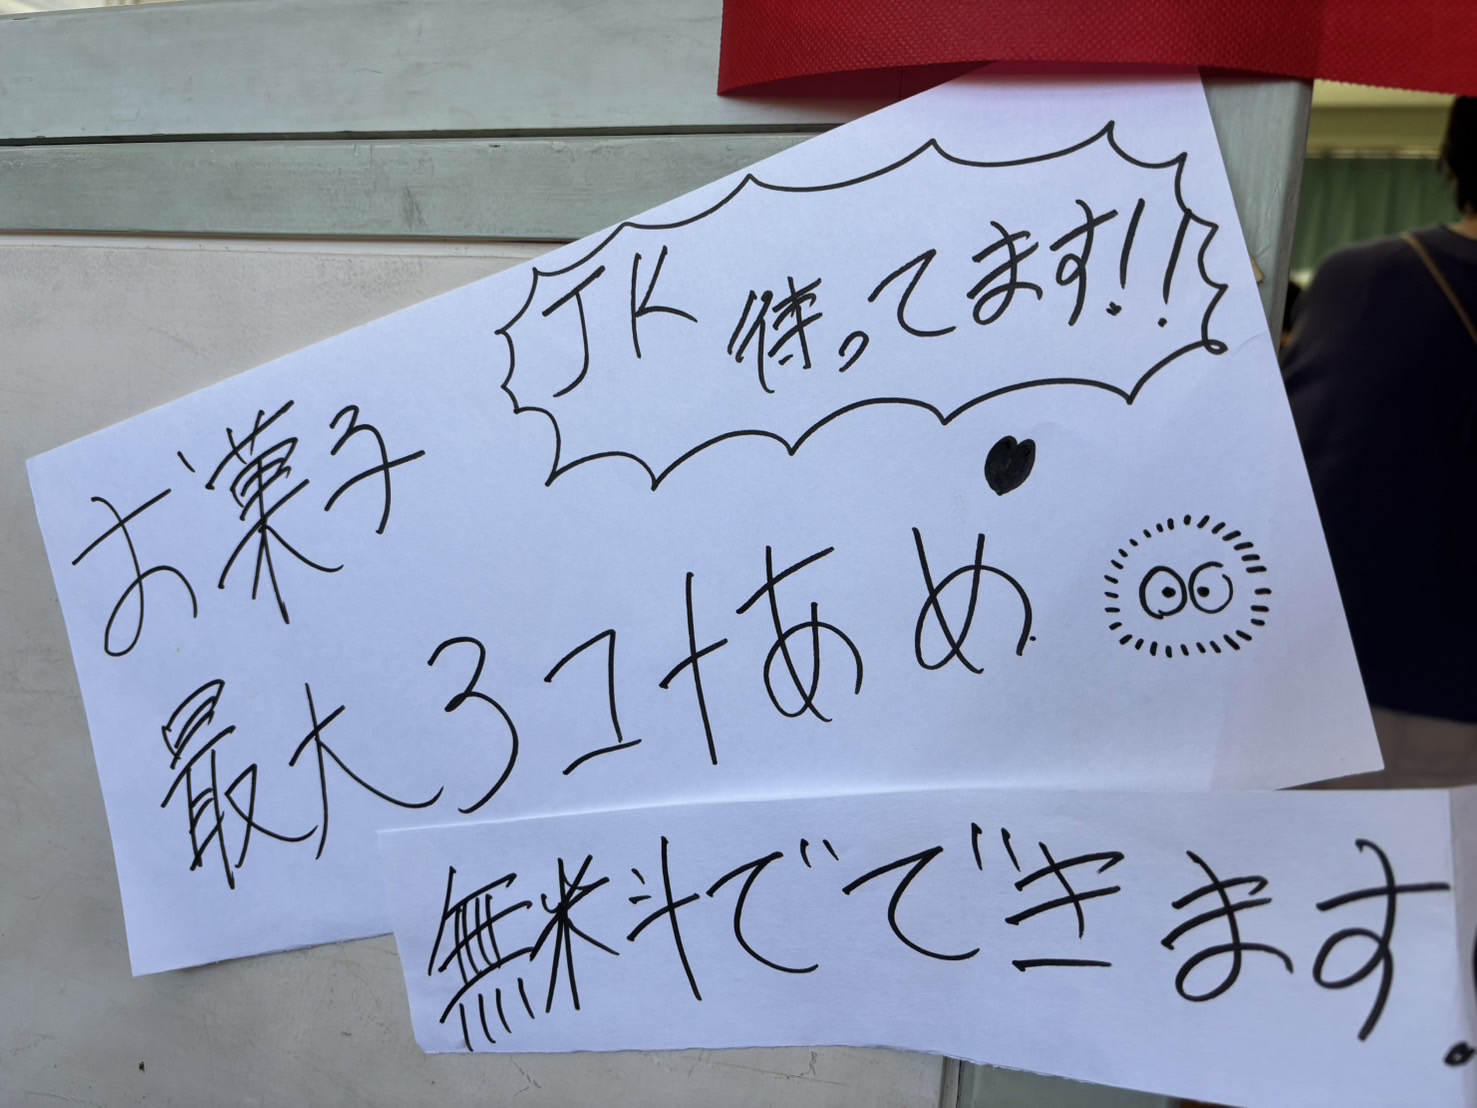 JK 待ってます!!
お菓子
最大3コ+あめ
無料でできます.